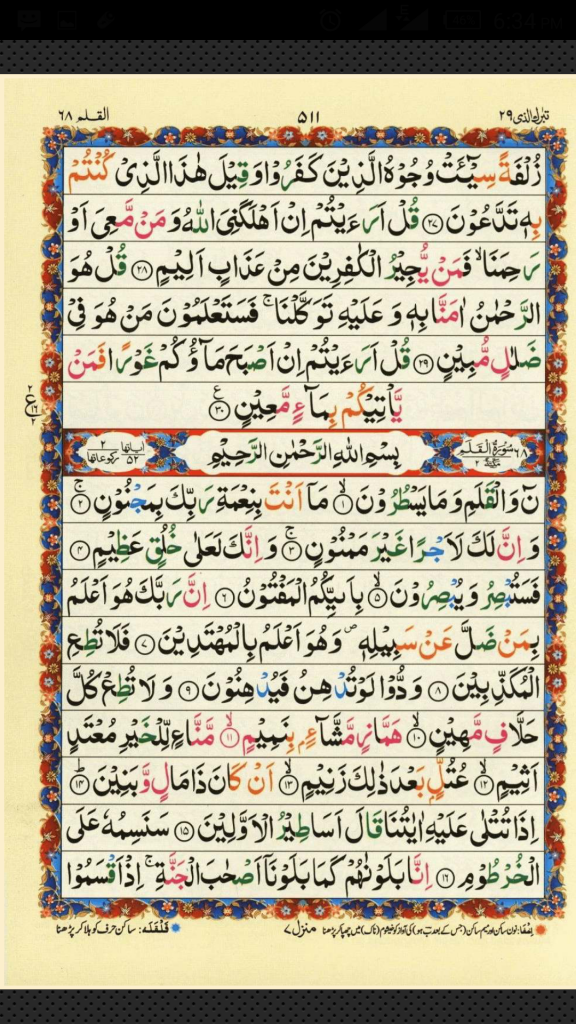 6:34 PM
تبٰرك الذى ٢٩ ٥١١ القلم ٦٨
زُلْفَةً سِيْٓـَٔتْ وُجُوْهُ الَّذِيْنَ كَفَرُوْا وَقِيْلَ هٰذَا الَّذِىْ كُنْتُمْ
بِهٖ تَدَّعُوْنَ ﴿٢٧﴾ قُلْ اَرَءَيْتُمْ اِنْ اَهْلَكَنِىَ اللّٰهُ وَ مَنْ مَّعِىَ اَوْ
رَحِمَنَا ۙ فَمَنْ يُّجِيْرُ الْكٰفِرِيْنَ مِنْ عَذَابٍ اَلِيْمٍ ﴿٢٨﴾ قُلْ هُوَ
الرَّحْمٰنُ اٰمَنَّا بِهٖ وَ عَلَيْهِ تَوَكَّلْنَا ۚ فَسَتَعْلَمُوْنَ مَنْ هُوَ فِىْ
ضَلٰلٍ مُّبِيْنٍ ﴿٢٩﴾ قُلْ اَرَءَيْتُمْ اِنْ اَصْبَحَ مَآؤُكُمْ غَوْرًا فَمَنْ
يَّاْتِيْكُمْ بِمَآءٍ مَّعِيْنٍ ﴿٣٠﴾
٢ ع ٢
٦٨ سُوْرَةُ الْقَلَمِ مكية ٢ بِسْمِ اللّٰهِ الرَّحْمٰنِ الرَّحِيْمِ اٰياتها ٥٢ ركوعاتها ٢
نٓ وَالْقَلَمِ وَ مَا يَسْطُرُوْنَ ﴿١﴾ مَآ اَنْتَ بِنِعْمَةِ رَبِّكَ بِمَجْنُوْنٍ ﴿٢﴾
وَ اِنَّ لَكَ لَاَجْرًا غَيْرَ مَمْنُوْنٍ ﴿٣﴾ وَ اِنَّكَ لَعَلٰى خُلُقٍ عَظِيْمٍ ﴿٤﴾
فَسَتُبْصِرُ وَ يُبْصِرُوْنَ ﴿٥﴾ بِاَيِّىكُمُ الْمَفْتُوْنُ ﴿٦﴾ اِنَّ رَبَّكَ هُوَ اَعْلَمُ
بِمَنْ ضَلَّ عَنْ سَبِيْلِهٖ ۪ وَ هُوَ اَعْلَمُ بِالْمُهْتَدِيْنَ ﴿٧﴾ فَلَا تُطِعِ
الْمُكَذِّبِيْنَ ﴿٨﴾ وَدُّوْا لَوْ تُدْهِنُ فَيُدْهِنُوْنَ ﴿٩﴾ وَ لَا تُطِعْ كُلَّ
حَلَّافٍ مَّهِيْنٍ ﴿١٠﴾ هَمَّازٍ مَّشَّآءٍۭ بِنَمِيْمٍ ﴿١١﴾ مَّنَّاعٍ لِّلْخَيْرِ مُعْتَدٍ
اَثِيْمٍ ﴿١٢﴾ عُتُلٍّۭ بَعْدَ ذٰلِكَ زَنِيْمٍ ﴿١٣﴾ اَنْ كَانَ ذَا مَالٍ وَّ بَنِيْنَ ﴿١٤﴾
اِذَا تُتْلٰى عَلَيْهِ اٰيٰتُنَا قَالَ اَسَاطِيْرُ الْاَوَّلِيْنَ ﴿١٥﴾ سَنَسِمُهٗ عَلَى
الْخُرْطُوْمِ ﴿١٦﴾ اِنَّا بَلَوْنٰهُمْ كَمَا بَلَوْنَآ اَصْحٰبَ الْجَنَّةِ ۚ اِذْ اَقْسَمُوْا
اِخفا: نون ساکن اور میم ساکن (جس کے بعد ب ہو) کی آواز کو خیشوم (ناک) میں چھپا کر پڑھنا منزل ٧ قَلْقَلَه: ساکن حرف کو ہلا کر پڑھنا